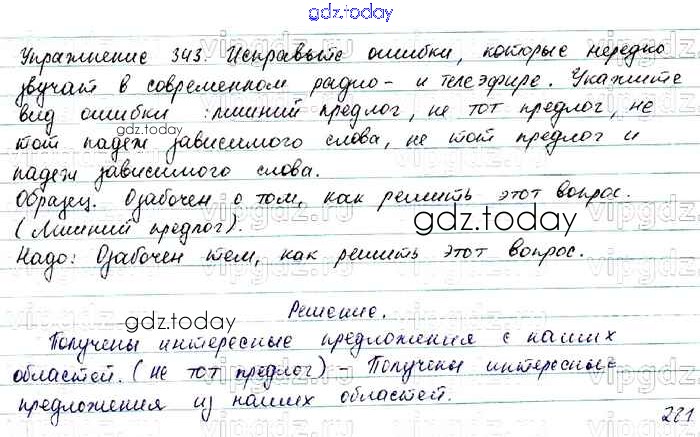 gdz.today
Упражнение 343. Исправьте ошибки, которые нередко
звучат в современном радио- и телеэфире. Укажите
вид ошибки: лишний предлог, не тот предлог, не
тот падеж зависимого слова, не тот предлог и
gdz.today
падеж зависимого слова.
Образец. Озабочен о том, как решить этот вопрос.
(Лишний предлог).
gdz.today
Надо: Озабочен тем, как решить этот вопрос.
gdz.today
Решение.
Получены интересные предложения с наших
областей. (не тот предлог) - Получены интересные
gdz.today
предложения из наших областей.
221